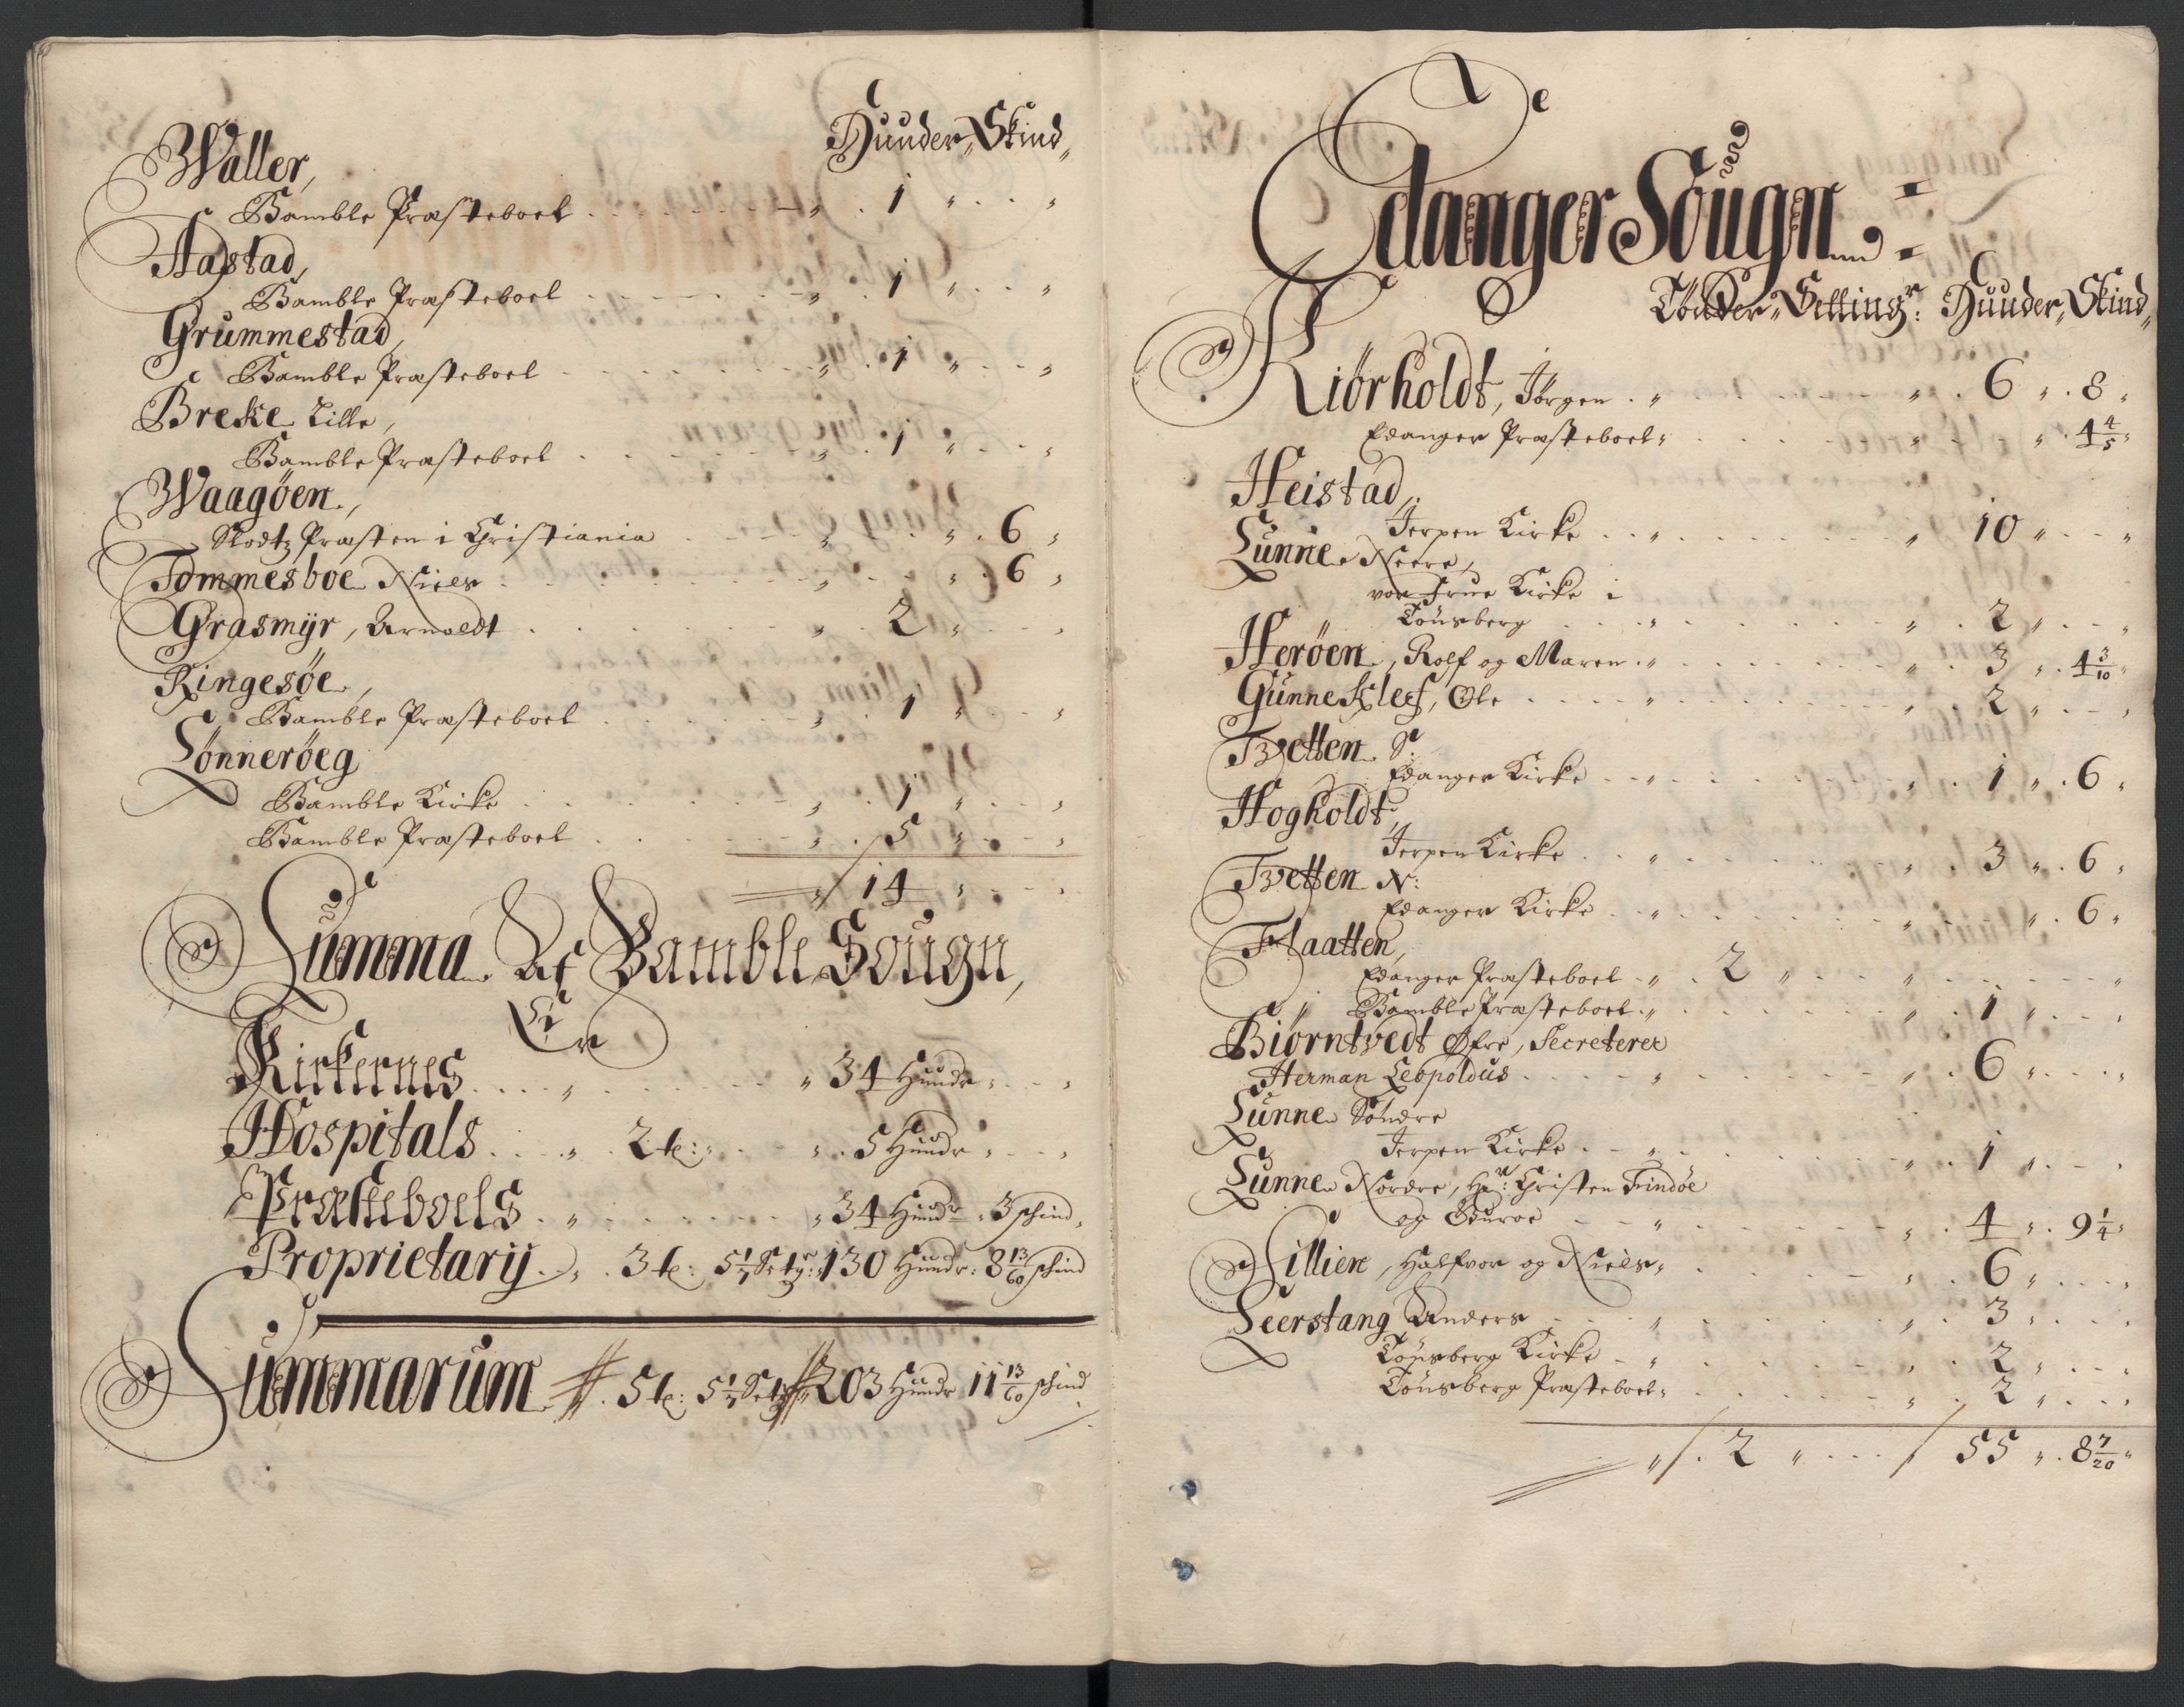 Huuder, Skind,
Waller,
Bamble Præsteboel . . . . . . . „ . 1 „ . . „
Aastad,
Bamble Præsteboel . . . . . . . „ . 1 „ . . „
Grummestad,
Bamble Præsteboel . . . . . . . „ . 1 „ . . „
Breke Lille,
Bamble Præsteboel . . . . . . . „ . 1 „ . . „
Waagöen,
Slodtz Præsten i Christiania . . . „ . . „ . 6 „
Tommesboe Niels . . . . . . . „ . . „ . 6 „
Grasmyr, Arnoldt . . . . . . . „ . 2 „ . . „
Ringesöe,
Bamble Præsteboel . . . . . . . „ . 1 „ . . „
Lönneröeg
Bamble Kirke . . . . . . . „ . 1 „ . . „
Bamble Præsteboel . . . . . . . „ . 5 „ . . „
„ / 14 „ . . „
Summa Af Bamble Sougn,
Er
Kirkernes . . . „ . . . . „ 34 Hunde „ . . „
Hospitals . . . „ . 2 t: „ . . „ . 5 Hunde „ . . „
Præsteboels . „ . . . . . „ 34 Hund: „ 3 skind,
Proprietarij . „ . 3 t: 5 1/7 Setg: „ 130 Hunde: 8 13/60 skind
Summarum // . 5 t: 5 1/7 Setg // 203 Hunde 11 13/60 skind
Edanger Sougn
Tönder, Setting: Huuder, Skind,
Kiörholdt, Jörgen . „ . . . . . „ . 6 „ . 8 „
Edanger Præsteboel „ . . . . . „ . . „ . 4 4/5 „
Heistad,
Jerpen Kirke . . „ . . . . . „ . 10 „ . . „
Lunne Neere,
vor Frue Kirke i
Tönsberg . . . „ . . . . . „ . 2 „ . . „
Heröen, Rolf og Maren . „ . . . . . „ . 3 „ . 4 3/10 „
Gunneklef, Ole . . . . „ . . . . . „ . 2 „ . . „
Tvetten S:
Edanger Kirke . . „ . . . . . „ . 1 „ . 6 „
Hogholdt,
Jerpen Kirke . . „ . . . . . „ . 3 „ . 6 „
Tvetten N:
Edanger Kirke . . „ . . . . . „ . . „ . 6 „
Flaatten,
Edanger Præsteboel . „ . 2 „ . . . „ . . . . „
„ Bamble Præsteboel . „ . . . . . „ . 1 „ . . „
Biörntvedt Øfre, Secreterer
Herman Leopoldus . . . . „ . . . . . „ . 6 „ . . „
Lunne Söndre
Jerpen Kirke . . „ . . . . . „ . 1 „ . . „
Lunne Nordre, Hr: Christen Findöe
og Guroe . . . „ . . . . . „ . 4 „ . 9 1/4 „
Lillien, Halfvor og Niels „ . . . . . „ . 6 „ . . „
Leerstang Anders . . . „ . . . . . „ . 3 . . . „
Tönsberg Kirke . „ . . . . . „ . 2 „ . . „
Tönsberg Præsteboel „ . . . . . „ . 2 „ . . „
„ / . 2 „ . . . / 55 „ . 8 7/20 „